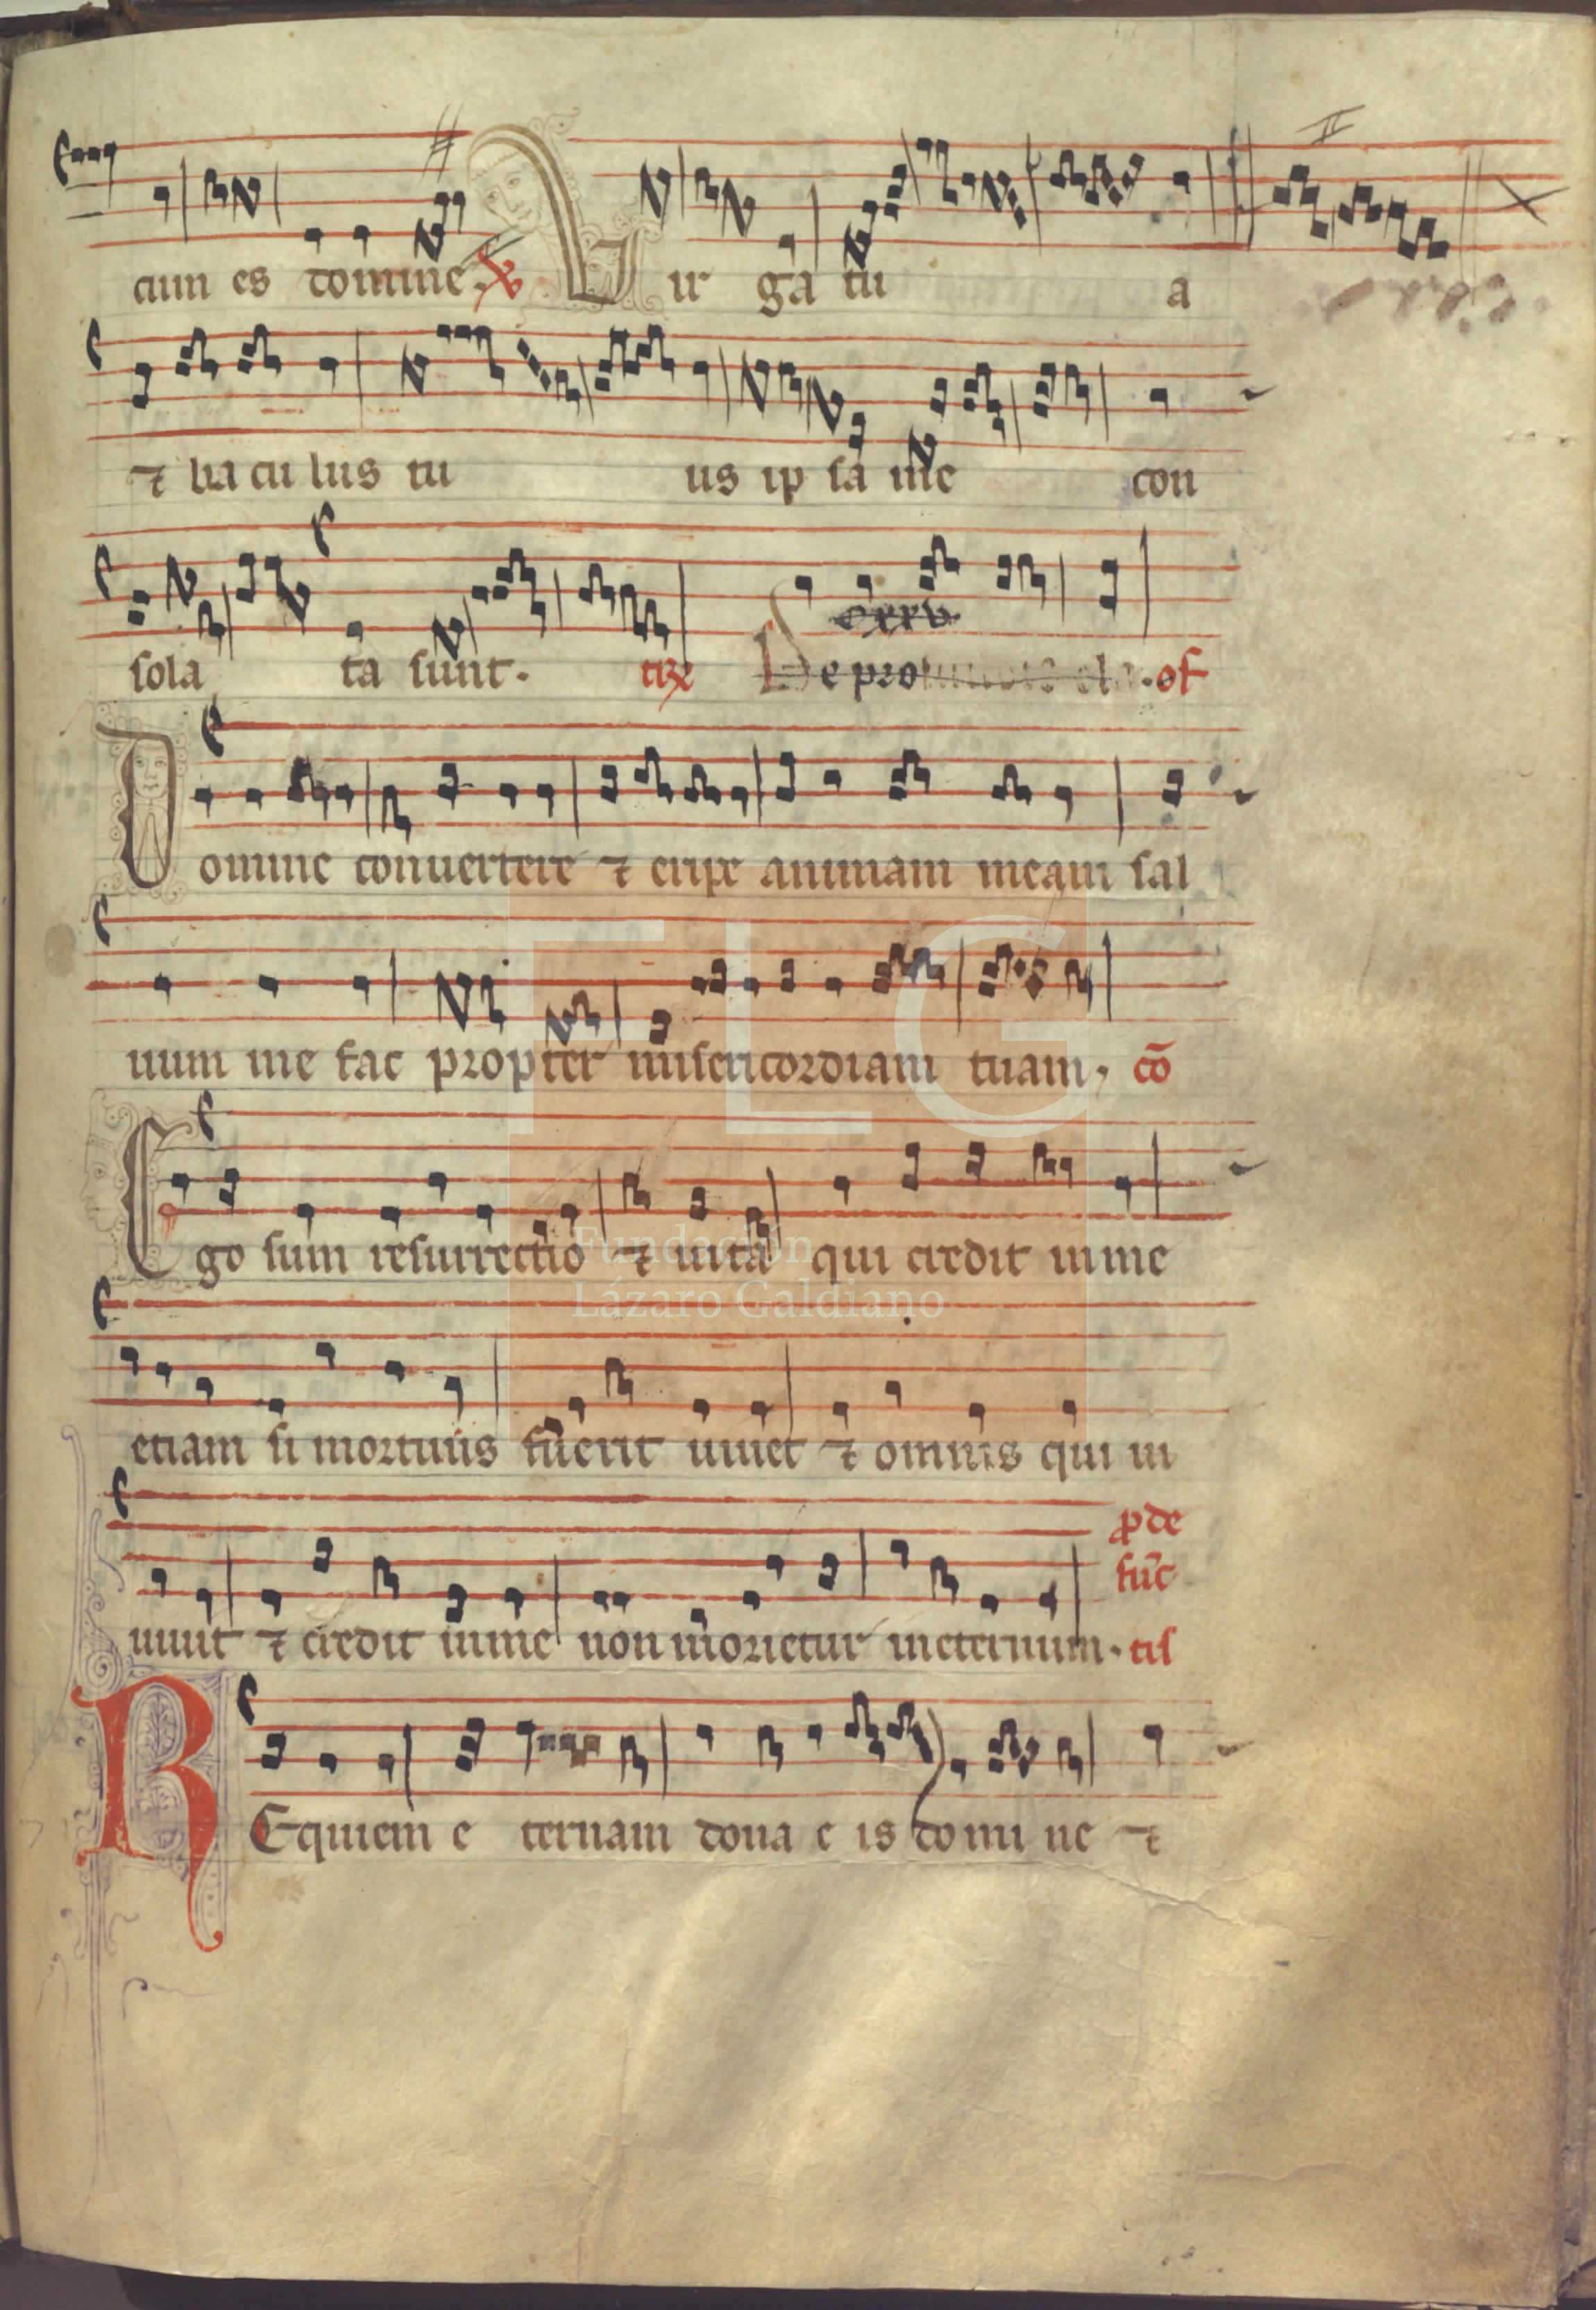 cum es domine. ℣ Vir ga tu a
⁊ ba cu lus tu us ip sa me con
sola ta sunt. tr̄c De pro of
Domine conuertere ⁊ eripe animam meam sal
uum me fac propter misericordiam tuam, cō
Ego sum resurrectio ⁊ uita qui credit in me
etiam si mortuus fuerit uiuet ⁊ omnis qui ui
ꝓ de
fūc
uiuit ⁊ credit in me non morietur in eternum. tis
REquiem e ternam dona e is domi ne ⁊
FLG
Fundación
Lázaro Galdiano